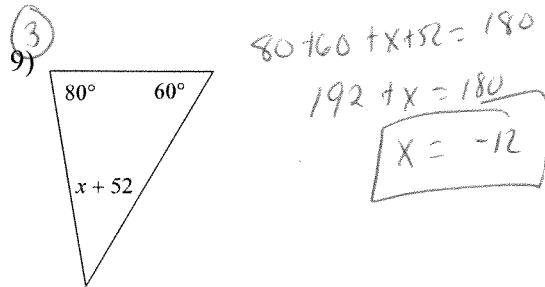 3
9)
80° 60°
x + 52
80+60 + x+52 = 180
192 + x = 180
x = -12